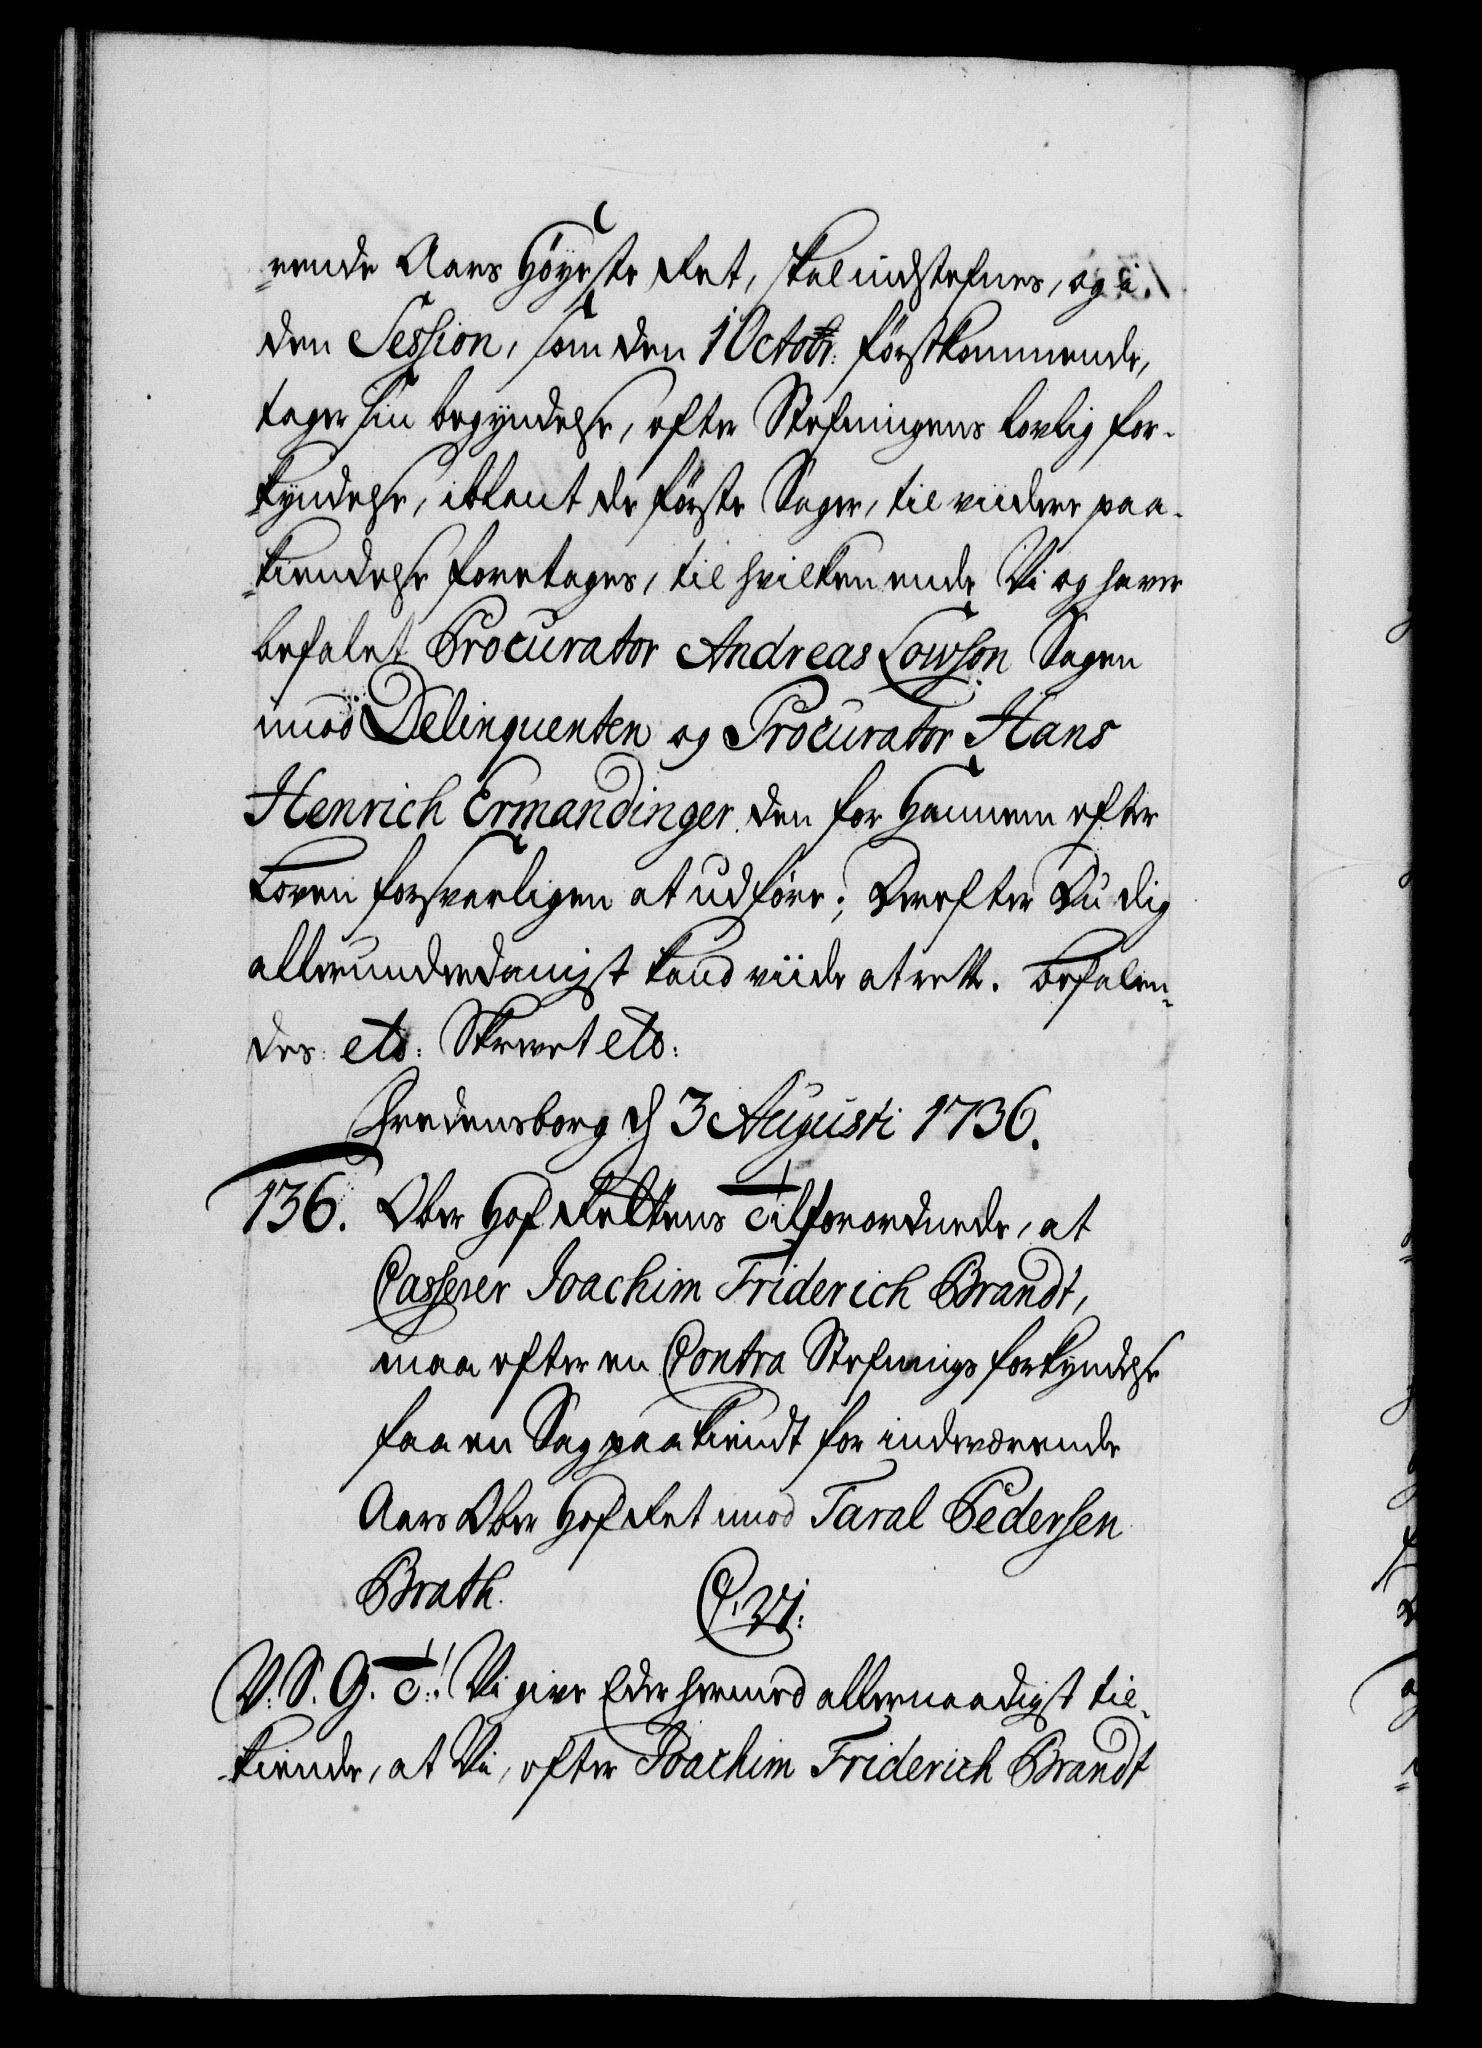 rende Aars Höyeste Ret, skal indstefnes, og i
den Session, som den 1 Octobr: förstkommende,
tager sin begyndelse, efter Stefningens lovlig for-
kyndelse, iblant de förste Sager, til viidere paa-
kiendelse foretages, til hvilken ende Vi og haver
befalet Procurator Andreas Lowson Sagen
imod Delinquenten og Procurator Hans
Henrich Ermandinger den for Hannem efter
Loven forsvarligen at udföre; Derefter Du dig
allerunderdanigst kand viide at rette. Befalen-
des etc: Skrevet etc:
Fredensborg d 3 Augusti 1736.
136. Ober Hof Rettens Tilforordnede, at
Casserer Joachim Friderich Brandt,
maa efter en Contra Stefnings forkyndelse
faa en Sag paakiendt for indeværende
Aars Ober Hof Ret imod Taral Pedersen
Brath. C. VI:
V. S. G. T.: Vi give Eder hermed allernaadigst til-
kiende, at Vi, efter Joachim Friderich Brandt